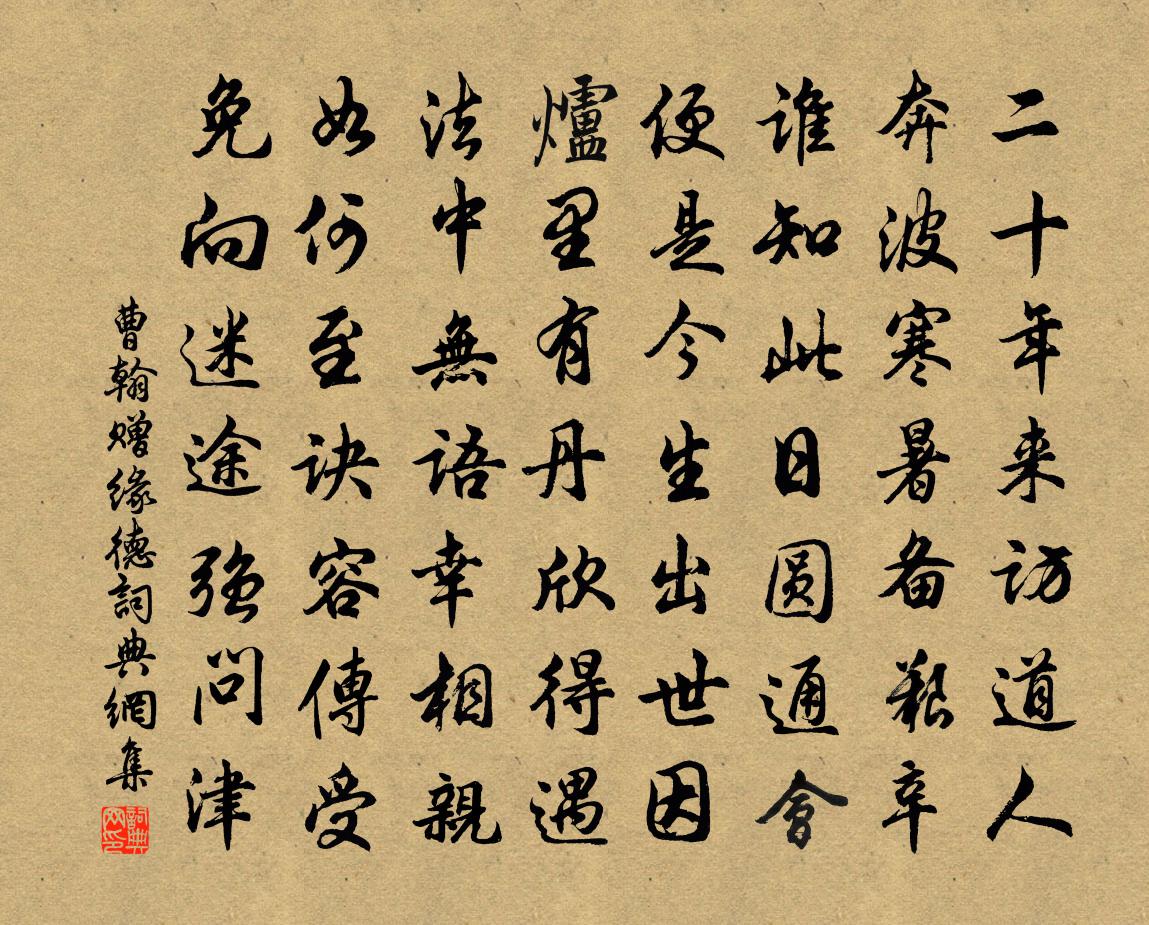 二十年来访道人
奔波寒暑备艱辛
谁知此日圆通會
便是今生出世因
爐里有丹欣得遇
法中無語幸相親
如何至诀容傳受
免向迷途強问津
曹翰赠缘德詞典網集
詞典網印